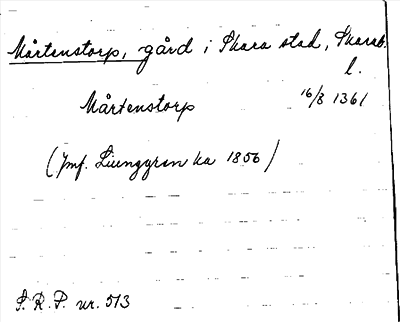 Mårtenstorp, gård i Skara stad, Skarab.
l.
Mårtenstorp 16/8 1361
(Jmf. Ljunggren ka 1856)
S. R. P. nr. 513